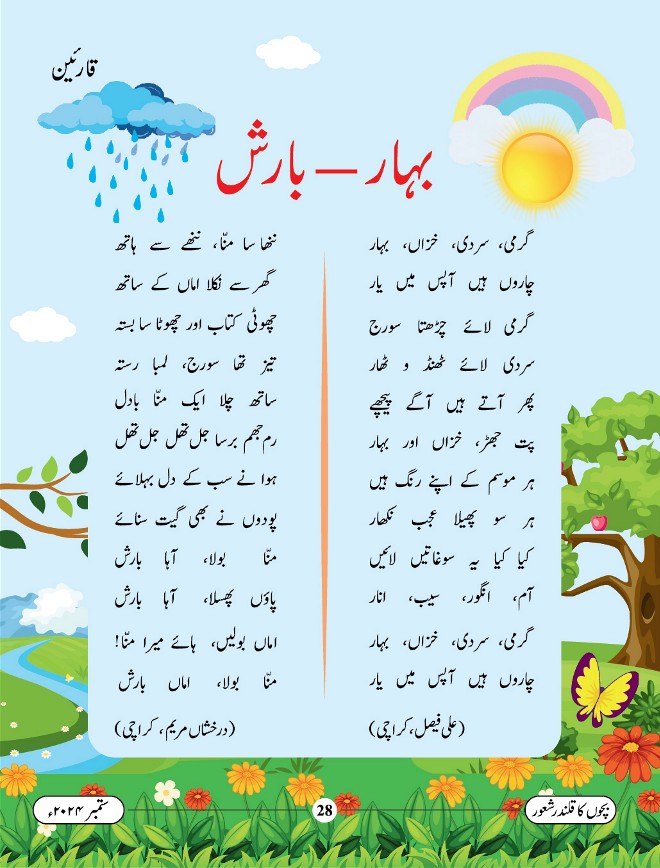 قارئین
بہار – بارش
گرمی، سردی، خزاں، بہار
چاروں ہیں آپس میں یار
گرمی لائے چڑھتا سورج
سردی لائے ٹھنڈ و ٹھار
پھر آتے ہیں آگے پیچھے
پت جھڑ، خزاں اور بہار
ہر موسم کے اپنے رنگ ہیں
ہر سو پھیلا عجب نکھار
کیا کیا یہ سوغاتیں لائیں
آم، انگور، سیب، انار
گرمی، سردی، خزاں، بہار
چاروں ہیں آپس میں یار
(علی فیصل، کراچی)
ننھا سا منّا، ننھے سے ہاتھ
گھر سے نکلا اماں کے ساتھ
چھوٹی کتاب اور چھوٹا سا بستہ
تیز تھا سورج، لمبا رستہ
ساتھ چلا ایک منّا بادل
رم جھم برسا جل تھل جل تھل
ہوا نے سب کے دل بہلائے
پودوں نے بھی گیت سنائے
منّا بولا، آہا بارش
پاؤں پھسلا، آہا بارش
اماں بولیں، ہائے میرا منّا!
منّا بولا، اماں بارش
(درخشاں مریم، کراچی)
بچوں کا قلندر شعور
28
ستمبر ۲۰۲۴ء